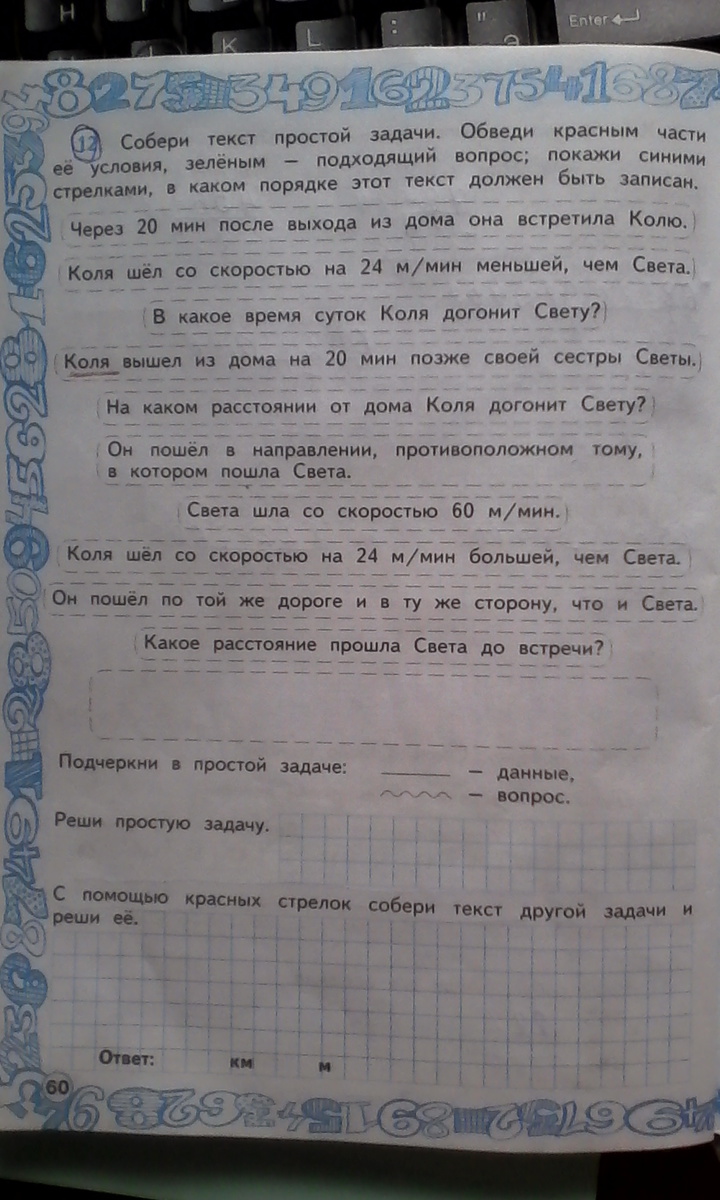 Н
Г
К
L
:
"
Э
Enter
8275 34916237541687
12 Собери текст простой задачи. Обведи красным части
её условия, зелёным — подходящий вопрос; покажи синими
стрелками, в каком порядке этот текст должен быть записан.
Через 20 мин после выхода из дома она встретила Колю.
Коля шёл со скоростью на 24 м/мин меньшей, чем Света.
В какое время суток Коля догонит Свету?
Коля вышел из дома на 20 мин позже своей сестры Светы.
На каком расстоянии от дома Коля догонит Свету?
Он пошёл в направлении, противоположном тому,
в котором пошла Света.
Света шла со скоростью 60 м/мин.
Коля шёл со скоростью на 24 м/мин большей, чем Света.
Он пошёл по той же дороге и в ту же сторону, что и Света.
Какое расстояние прошла Света до встречи?
Подчеркни в простой задаче: — данные,
— вопрос.
Реши простую задачу.
С помощью красных стрелок собери текст другой задачи и
реши её.
Ответ: км м
60